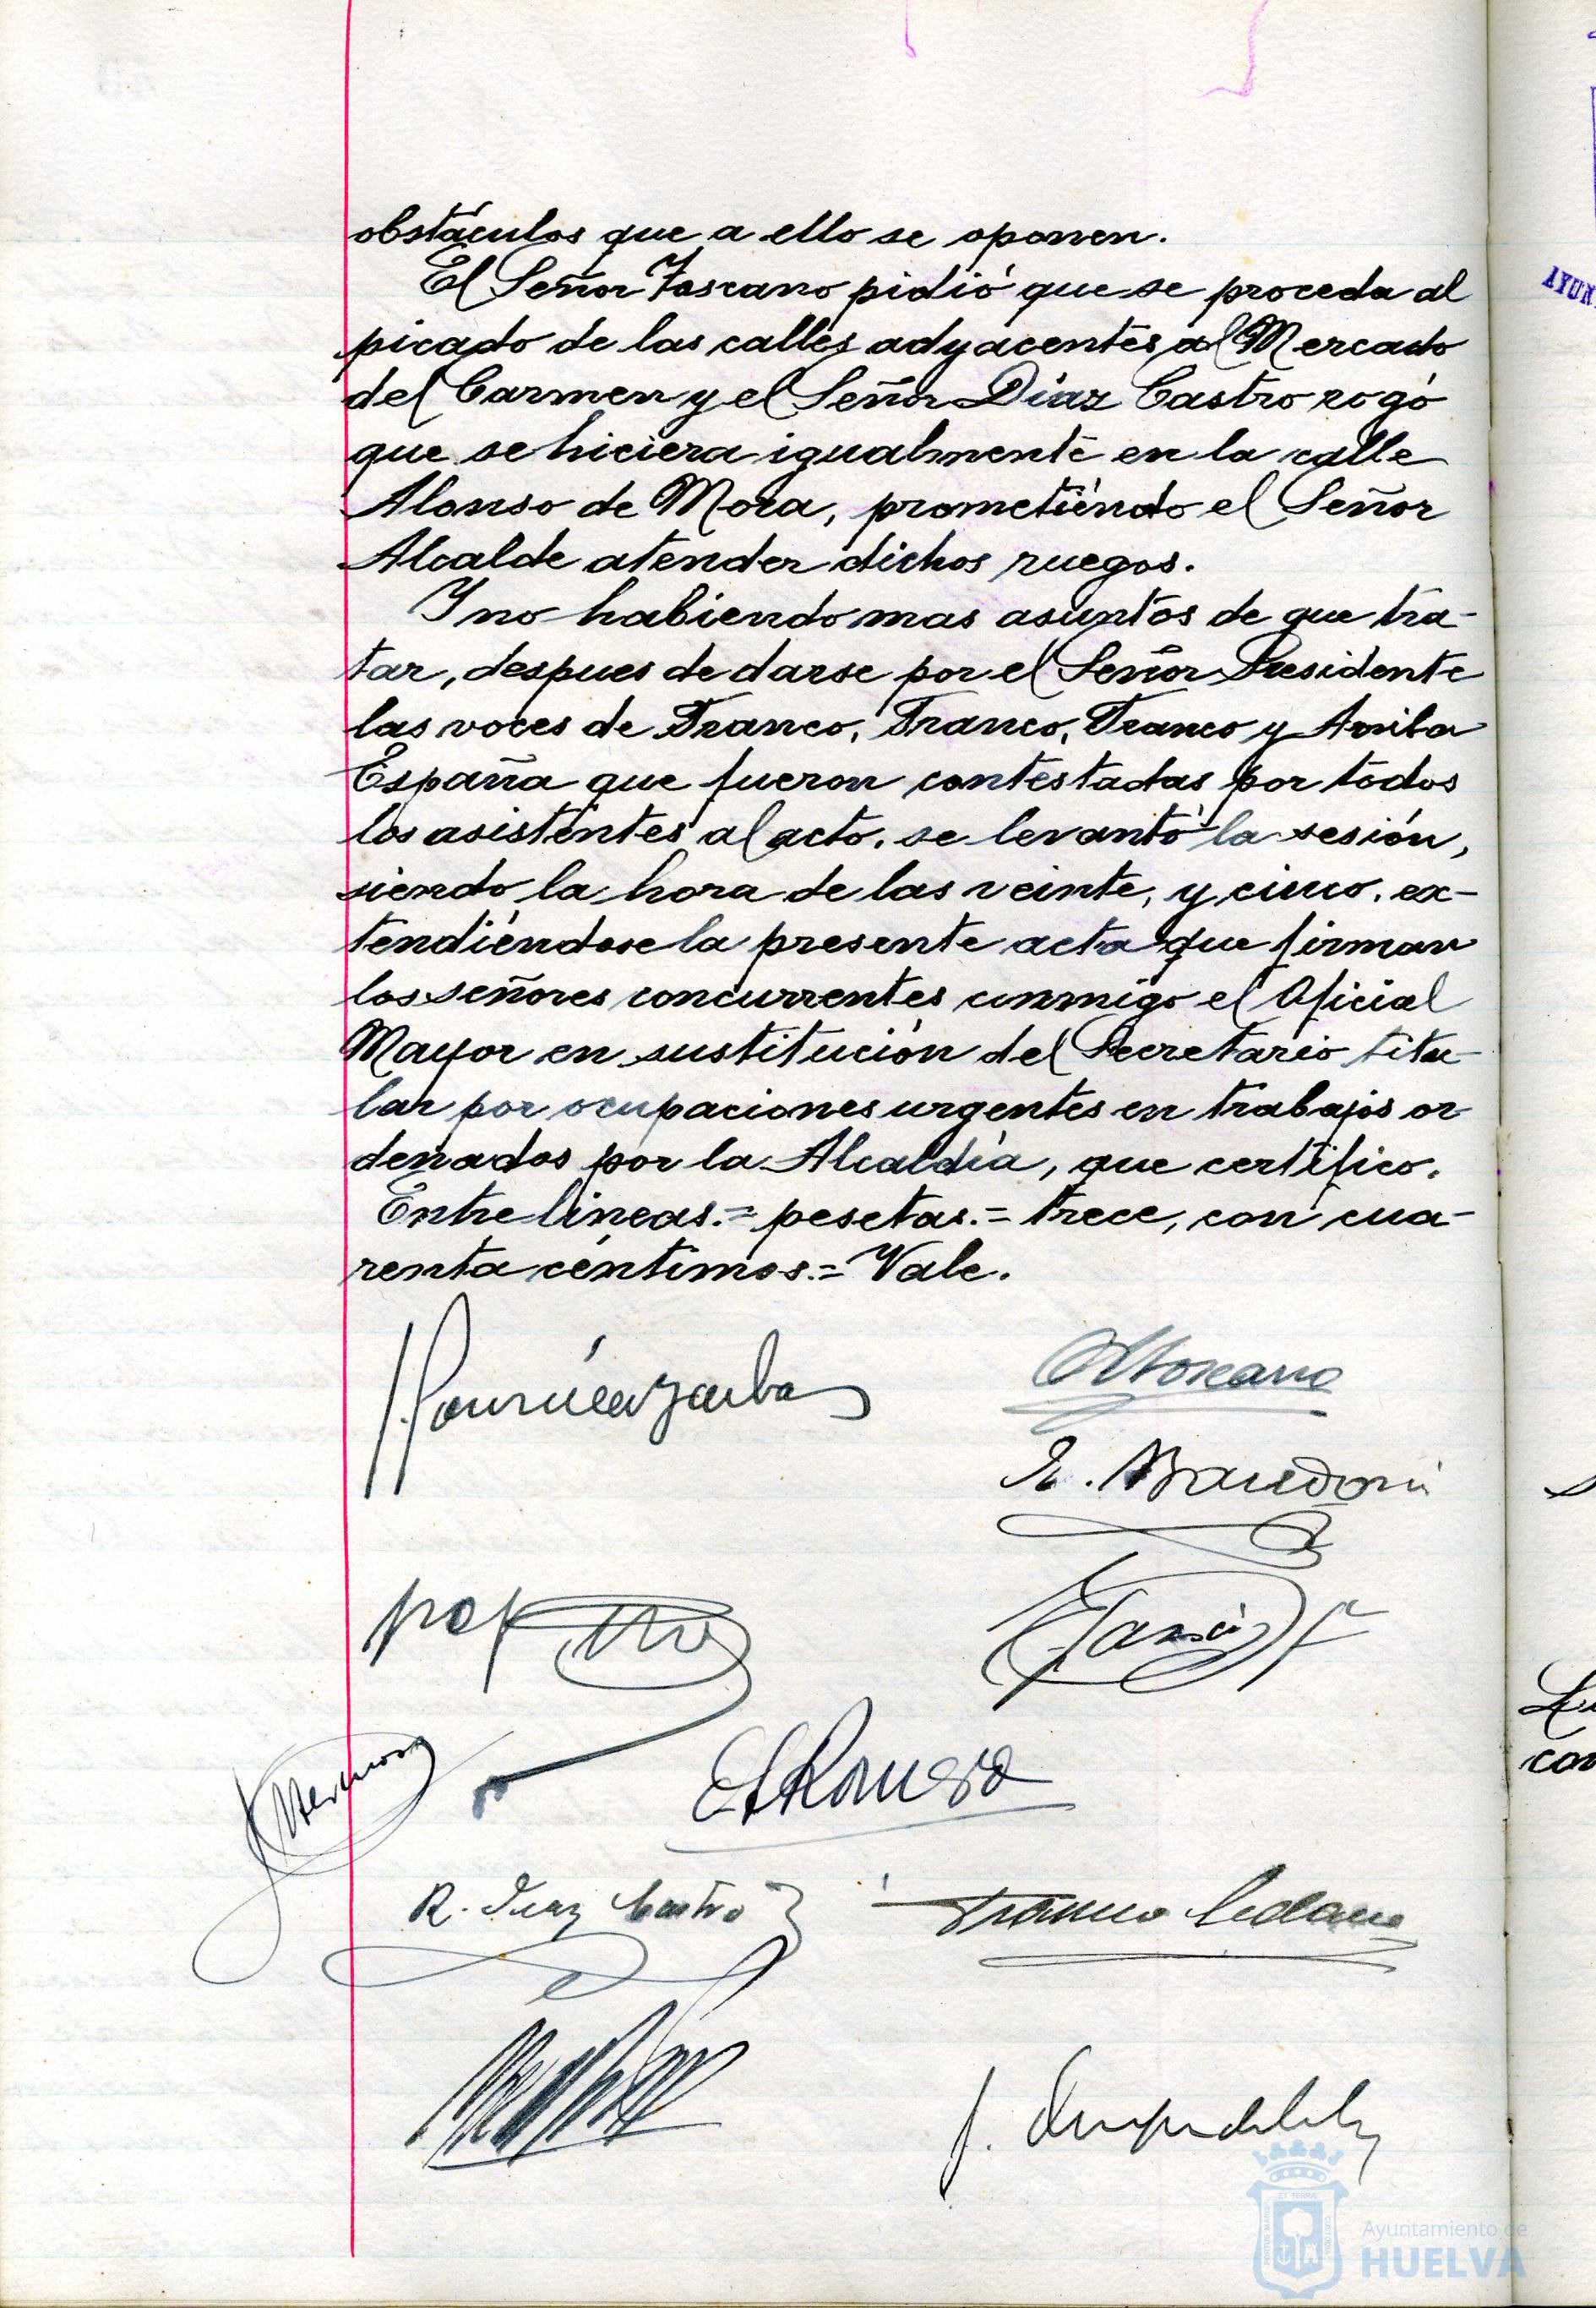 obstáculos que a ello se oponen.
El Señor Toscano pidió que se proceda al
picado de las calles adyacentes al Mercado
del Carmen y el Señor Díaz Castro rogó
que se hiciera igualmente en la calle
Alonso de Mora, prometiendo el Señor
Alcalde atender dichos ruegos.
Y no habiendo mas asuntos de que tra-
tar, despues de darse por el Señor Presidente
las voces de Franco, Franco, Franco y Arriba
España que fueron contestadas por todos
los asistentes al acto, se levantó la sesión,
siendo la hora de las veinte, y cinco, ex-
tendiéndose la presente acta que firman
los señores concurrentes conmigo el Oficial
Mayor en sustitución del Secretario titu-
lar por ocupaciones urgentes en trabajos or
denados por la Alcaldía, que certifico.
Entre lineas.= pesetas.= trece, con cua-
renta céntimos.= Vale.
R. Díaz Castro
AYUN
con
Ayuntamiento de
HUELVA